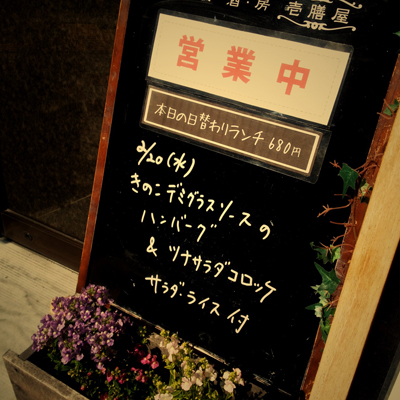 酒・房 壱膳屋
営業中
本日の日替わりランチ 680円
2/20(水)
きのこデミグラスソースの
ハンバーグ
& ツナサラダコロッケ
サラダ・ライス付